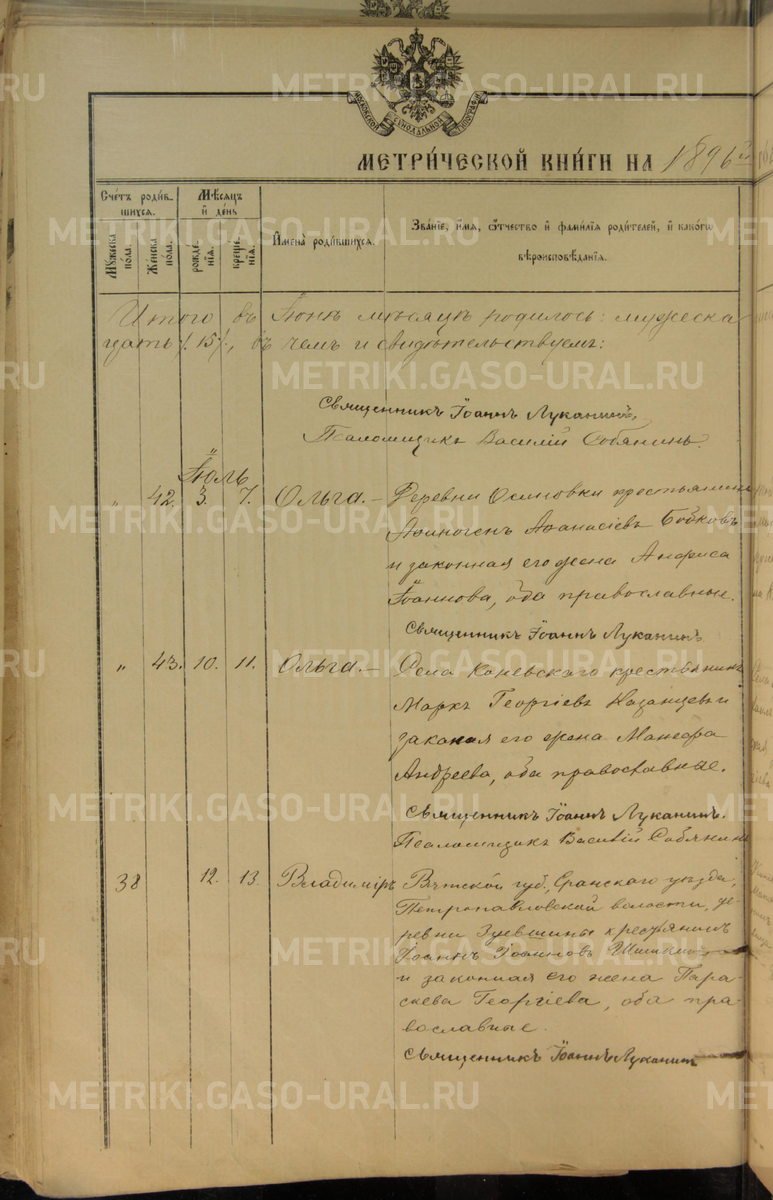 METRIKI.GASO-URAL.RU
МОСКОВСКОЙ СѴНОДАЛЬНОЙ ТИПОГРАФІИ
МЕТРИ́ЧЕСКОЙ КНИ́ГИ НА 1896й
Сче́тъ роди́вшихся.
Мѣ́сяцъ и҆ де́нь
Мꙋ́жеска по́ла.
Же́нска по́ла.
рожде́нїѧ.
креще́нїѧ.
И҆мена̀ роди́вшихсѧ.
Зва́нїе, и҆́мѧ, ѻ҆́тчество и҆ фами́лїѧ роди́телей, и҆ како́гѡ вѣроисповѣ́данїѧ.
Итого въ Іюнѣ мѣсяцѣ родилось: мужеска
15, въ чемъ и свидѣтельствуемъ:
Священникъ Іоаннъ Луканинъ,
Псаломщикъ Василій Собянинъ.
Іюль
" 42. 3. 7. Ольга. – Деревни Осиновки крестьянинъ
Аѳиногенъ Аѳанасіевъ Бобковъ
и законная его жена Анфиса
Іоаннова, оба православные.
Священникъ Іоаннъ Луканинъ
" 43. 10. 11. Ольга. – Села Коневскаго крестьянинъ
Маркъ Георгіевъ Казанцевъ и
законая его жена Манефа
Андреева, оба православные.
Священникъ Іоаннъ Луканинъ.
Псаломщикъ Василій Собянинъ
38 12. 13. Владиміръ Вятской губ., Яранскаго уѣзда,
Петропавловской волости, де-
ревни Зуевшины крестьянинъ
Іоаннъ Іоанновъ Шишкинъ
и законная его жена Пара-
скева Георгіева, оба пра-
вославные.
Священникъ Іоаннъ Луканинъ